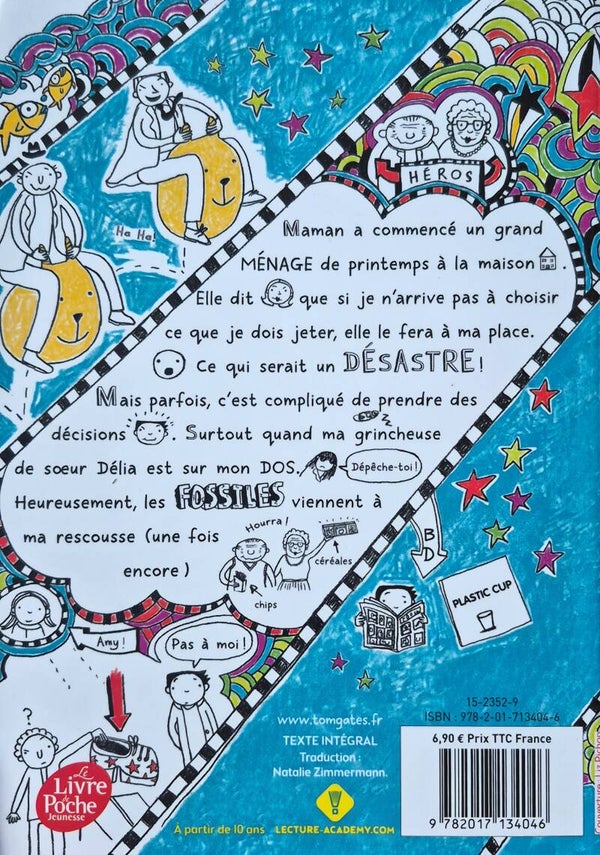 HÉROS
Ha Ha!
Maman a commencé un grand
MÉNAGE de printemps à la maison .
Elle dit que si je n'arrive pas à choisir
ce que je dois jeter, elle le fera à ma place.
Ce qui serait un DÉSASTRE!
Mais parfois, c'est compliqué de prendre des
décisions . Surtout quand ma grincheuse
de sœur Délia est sur mon DOS. Dépêche-toi!
Heureusement, les FOSSILES viennent à
ma rescousse (une fois
encore)
Hourra!
céréales
chips
BD
PLASTIC CUP
Amy!
Pas à moi!
?
Le
LIVRE
de
POCHE
Jeunesse
www.tomgates.fr
TEXTE INTÉGRAL
Traduction :
Natalie Zimmermann.
À partir de 10 ans
LECTURE-ACADEMY.COM
15-2352-9
ISBN : 978-2-01-713404-6
6,90 € Prix TTC France
9 782017 134046